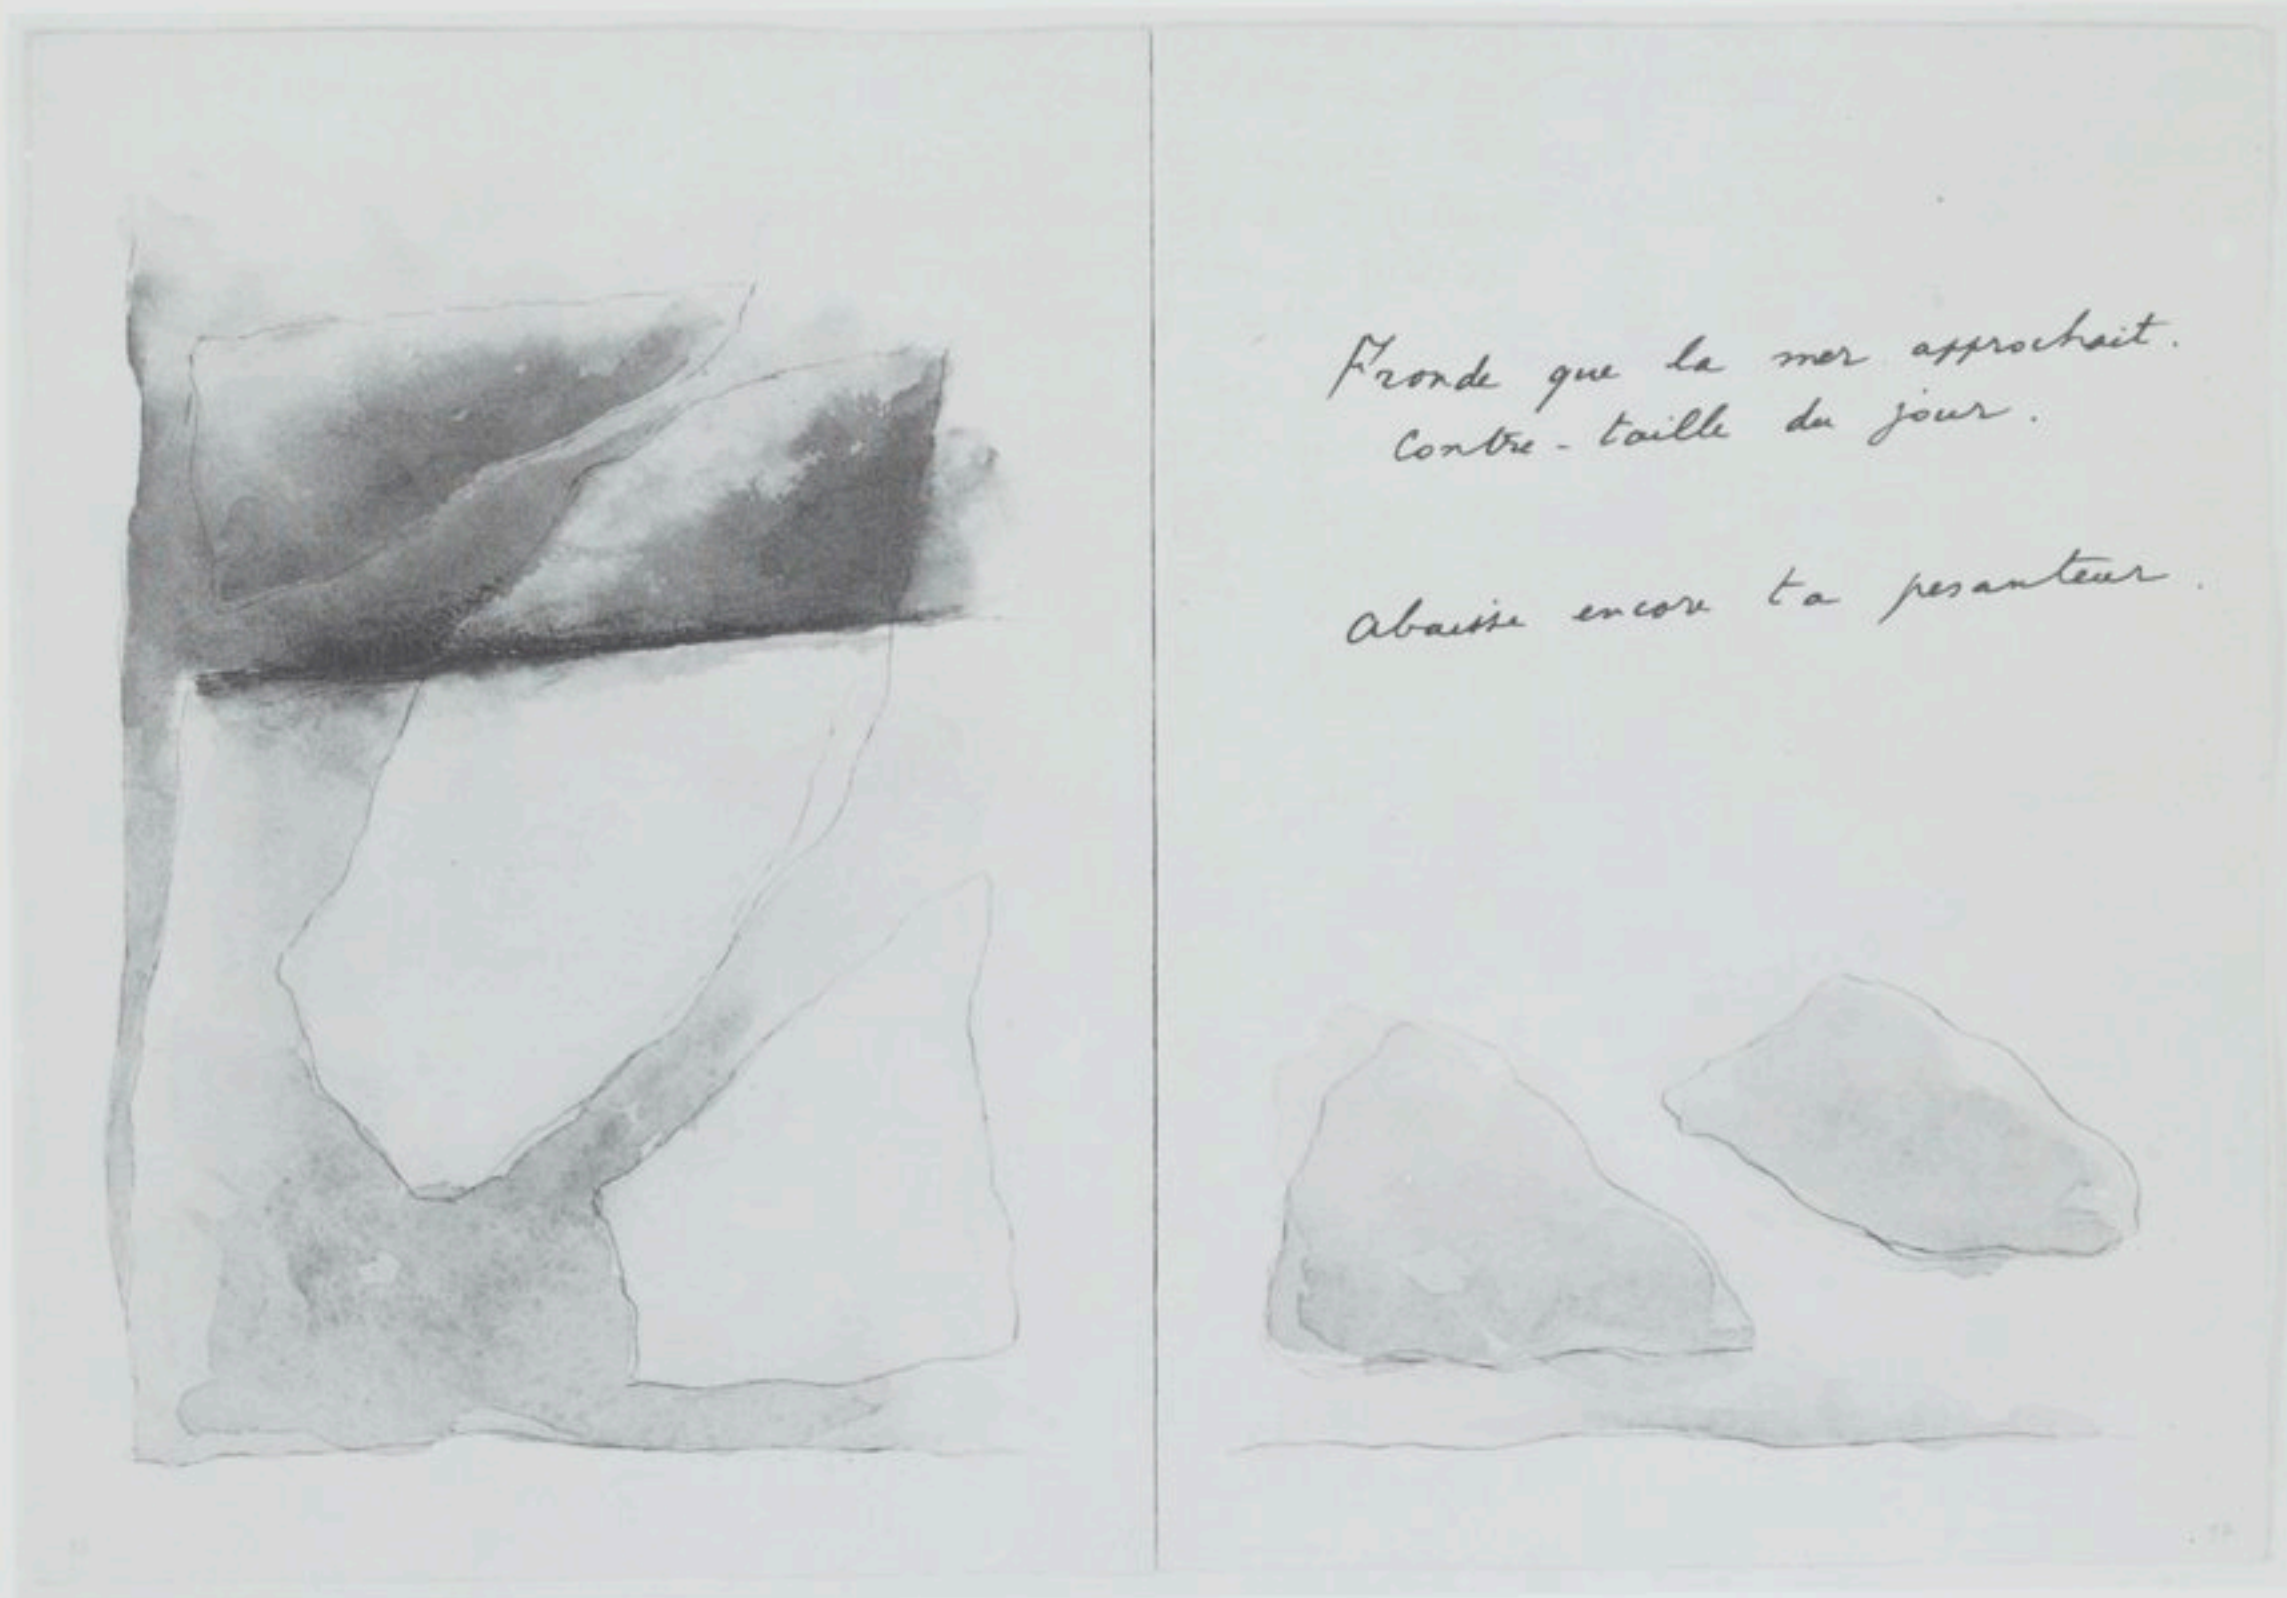 Fronde que la mer approchait.
Contre-taille du jour.
Abaisse encore ta pesanteur.